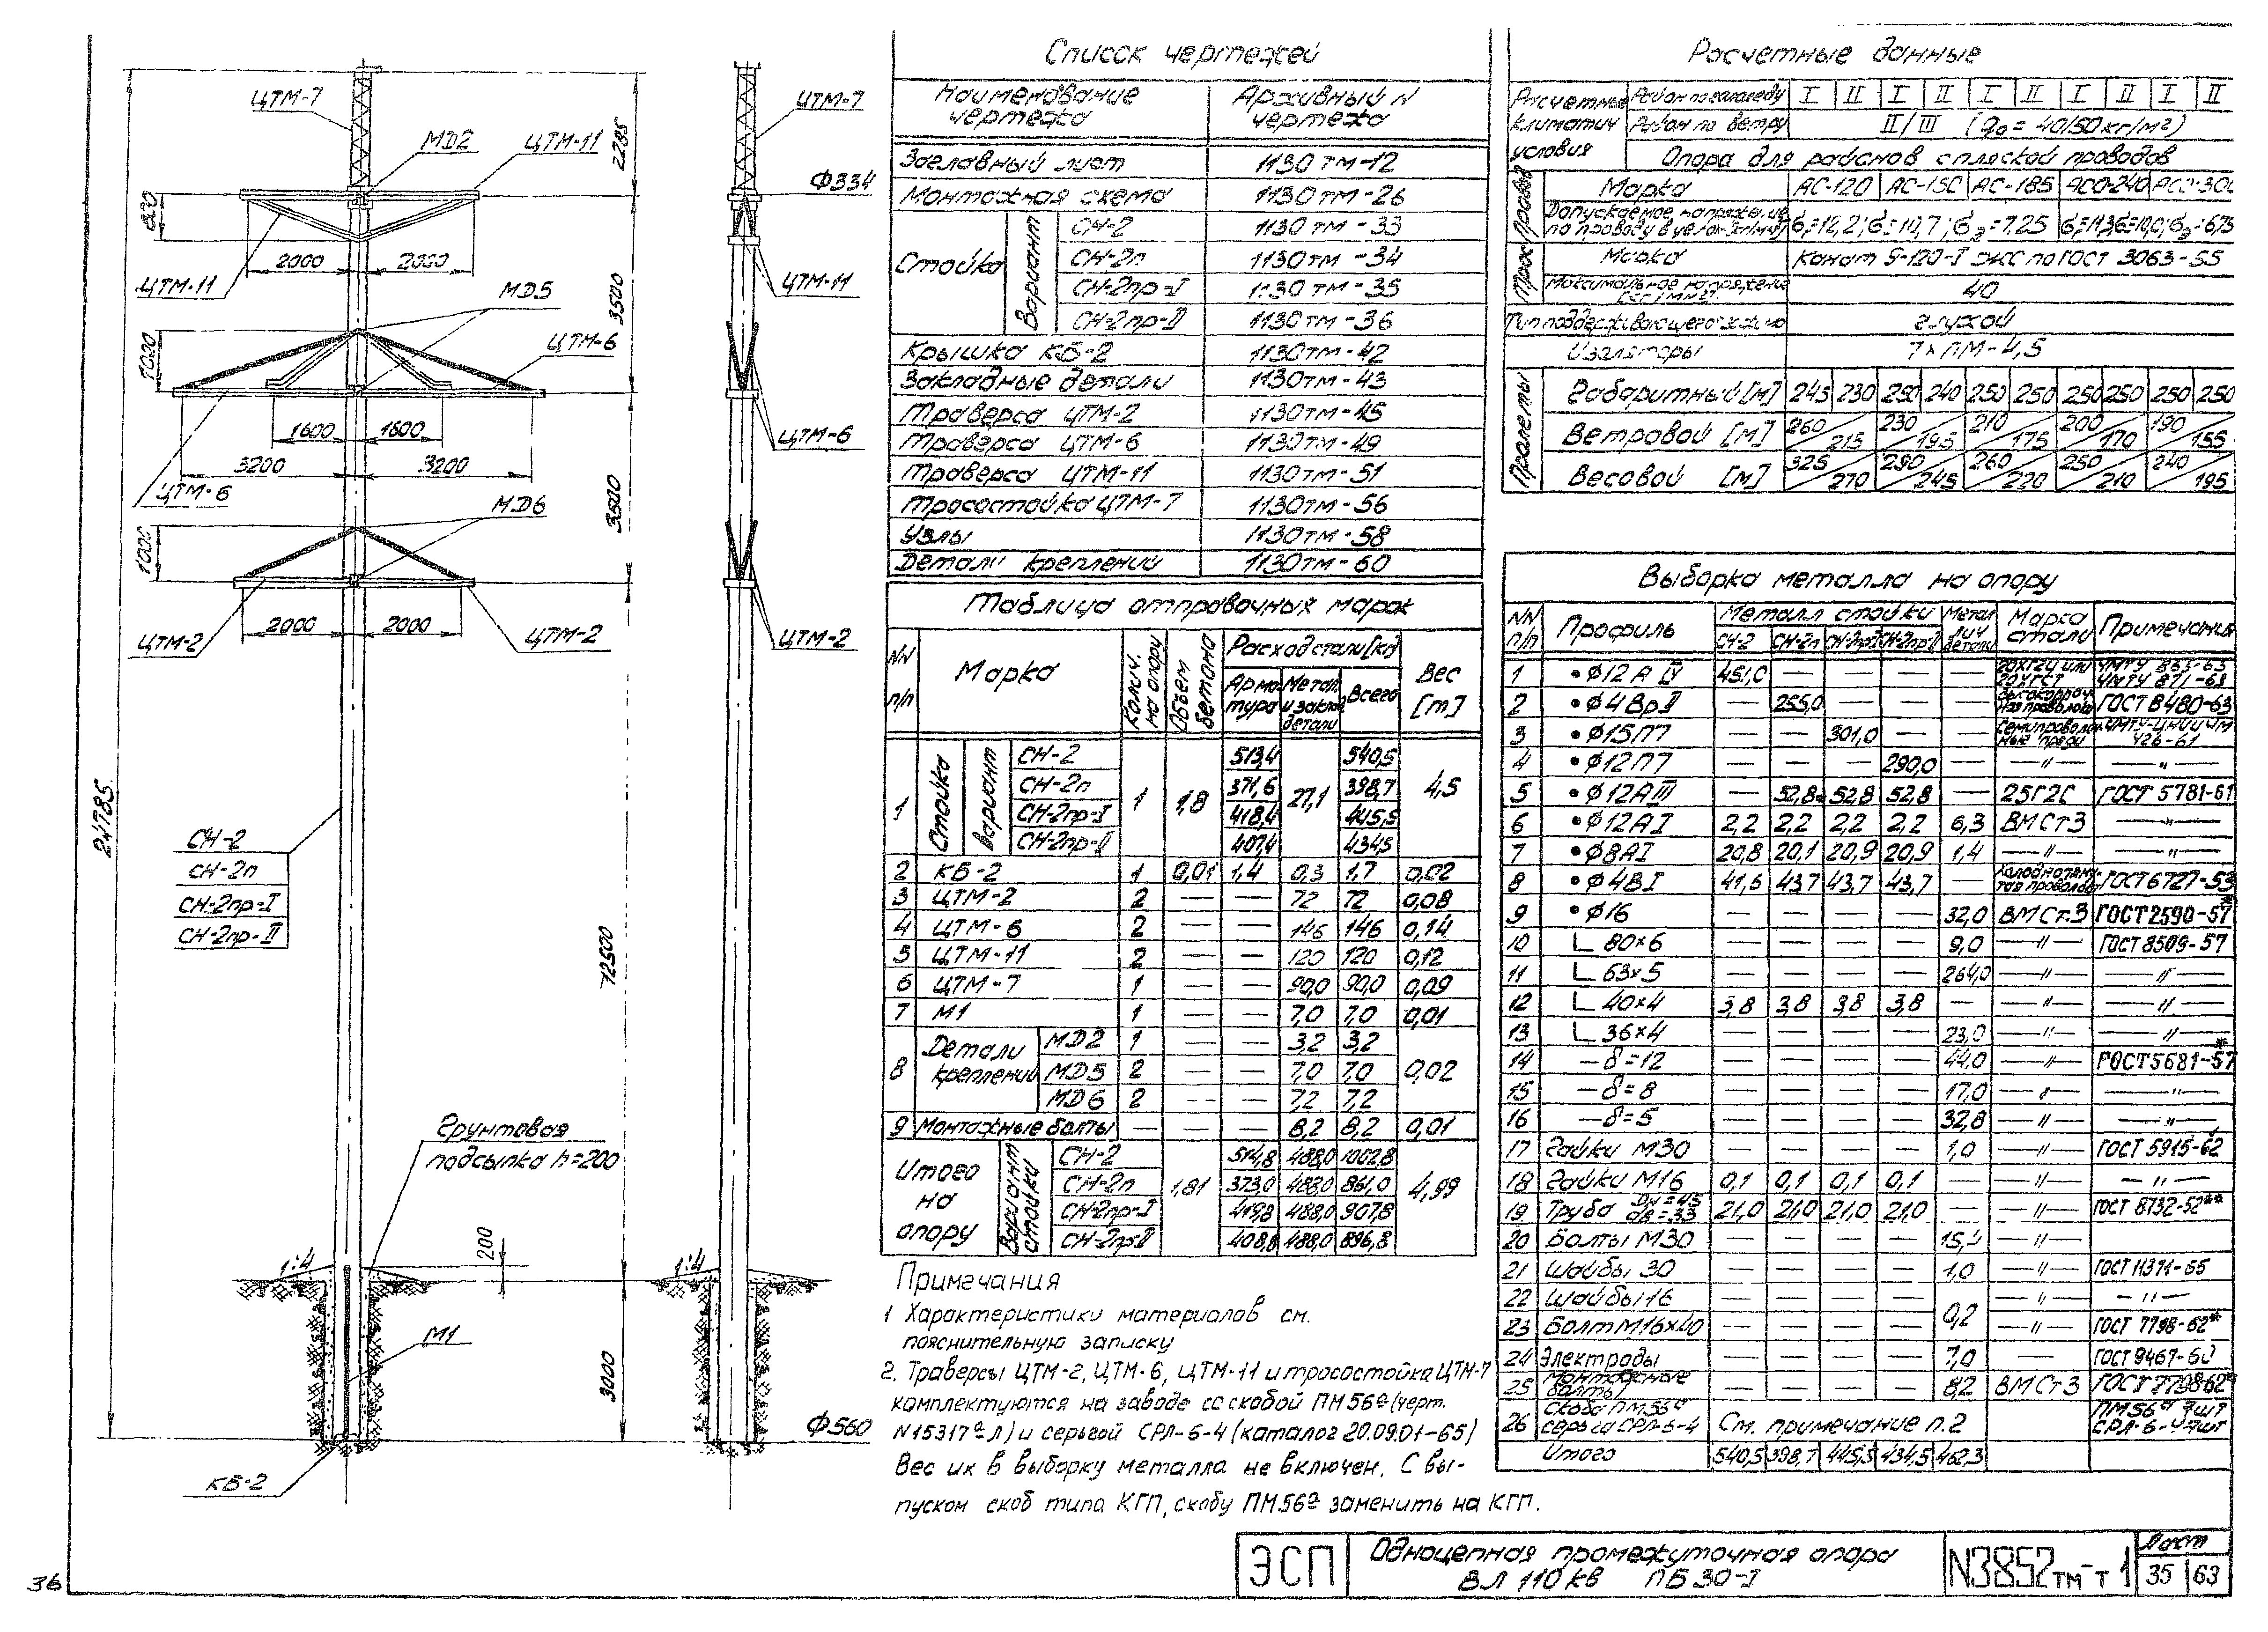 ЦТМ-7
МD2
ЦТМ-11
2285
Ф334
820
2000
2000
ЦТМ-11
МD5
3500
1000
ЦТМ-6
1600
1600
3200
3200
ЦТМ-6
МD6
3500
1000
2000
2000
ЦТМ-2
ЦТМ-2
24785
СН-2
СН-2п
СН-2пр-I
СН-2пр-II
12500
Грунтовая
подсыпка h=200
200
1:4
М1
3000
КБ-2
ЦТМ-7
ЦТМ-11
ЦТМ-6
ЦТМ-2
1:4
Ф560
36
Список чертежей
Наименование чертежа Архивный N чертежа
Заглавный лист 1130тм-12
Монтажная схема 1130тм-26
Стойка Вариант СН-2 1130тм-33
СН-2п 1130тм-34
СН-2пр-I 1130тм-35
СН-2пр-II 1130тм-36
Крышка КБ-2 1130тм-42
Закладные детали 1130тм-43
Траверса ЦТМ-2 1130тм-45
Траверса ЦТМ-6 1130тм-49
Траверса ЦТМ-11 1130тм-51
Тросостойка ЦТМ-7 1130тм-56
Узлы 1130тм-58
Детали креплений 1130тм-60
Таблица отправочных марок
NN п/п Марка Колич. на опору Объем бетона Расход стали [кг] Вес [т]
Арматура Метал. и заклад. детали Всего
1 Стойка Вариант СН-2 1 1,8 513,4 27,1 540,5 4,5
СН-2п 371,6 398,7
СН-2пр-I 418,4 445,5
СН-2пр-II 407,4 434,5
2 КБ-2 1 0,01 1,4 0,3 1,7 0,02
3 ЦТМ-2 2 — — 72 72 0,08
4 ЦТМ-6 2 — — 146 146 0,14
5 ЦТМ-11 2 — — 120 120 0,12
6 ЦТМ-7 1 — — 90,0 90,0 0,09
7 М1 1 — — 7,0 7,0 0,01
8 Детали креплений МD2 1 — — 3,2 3,2 0,02
МD5 2 — — 7,0 7,0
МD6 2 — — 7,2 7,2
9 Монтажные болты — — — 8,2 8,2 0,01
Итого на опору Вариант стойки СН-2 1,81 514,8 488,0 1002,8 4,99
СН-2п 373,0 488,0 861,0
СН-2пр-I 419,8 488,0 907,8
СН-2пр-II 408,8 488,0 896,8
Примечания
1 Характеристики материалов см.
пояснительную записку
2. Траверсы ЦТМ-2, ЦТМ-6, ЦТМ-11 и тросостойка ЦТМ-7
комплектуются на заводе со скобой ПМ56а (черт.
N15317а л) и серьгой СРЛ-6-4 (каталог 20.09.01-65)
Вес их в выборку металла не включен. С вы-
пуском скоб типа КГП, скобу ПМ56а заменить на КГП.
Расчетные данные
Расчетные климатич условия Район по гололеду I II I II I II I II I II
Район по ветру II/III (q₀=40/50кг/м²)
Опора для районов с пляской проводов
Провод Марка АС-120 АС-150 АС-185 АСО-240 АСО-300
Допускаемое напряжение по проводу в целом
Трос Марка Канат 9-120-I ЖС по ГОСТ 3063-55
Максимальное напряжение 40
Тип поддерживающего зажима глухой
Изоляторы 7×ПМ-4,5
Пролеты Габаритный [м] 245 230 250 240 250 250 250 250 250 250
Ветровой [м] 260/215 230/195 210/175 200/170 190/155
Весовой [м] 325/270 290/245 260/220 250/210 240/195
Выборка металла на опору
NN п/п Профиль Металл стойки Металлич детали Марка стали Примечания
СН-2 СН-2п СН-2пр-I СН-2пр-II
1 •Ф12АIV 451,0 — — — — 20ХГ2Ц или 20ХГСТ ЧМТУ 863-63 ЧМТУ 871-63
2 •Ф4ВрII — 255,0 — — — Высокопроч ная проволока ГОСТ 8480-63
3 •Ф15П7 — — 301,0 — — Семипроволочные пряди ЧМТУ-ЦНИИЧМ 426-61
4 •Ф12П7 — — — 290,0 — —"— —"—
5 •Ф12АIII — 52,8 52,8 52,8 — 25Г2С ГОСТ 5781-61
6 •Ф12АI 2,2 2,2 2,2 2,2 6,3 ВМСт3 —"—
7 •Ф8АI 20,8 20,1 20,9 20,9 1,4 —"— —"—
8 •Ф4ВI 41,6 43,7 43,7 43,7 — Холоднотянутая проволока ГОСТ 6727-53
9 •Ф16 — — — — 32,0 ВМСт.3 ГОСТ 2590-57*
10 L 80×6 — — — — 9,0 —"— ГОСТ 8509-57
11 L 63×5 — — — — 264,0 —"— —"—
12 L 40×4 3,8 3,8 3,8 3,8 — —"— —"—
13 L 36×4 — — — — 23,0 —"— —"—
14 —δ=12 — — — — 44,0 —"— ГОСТ 5681-57*
15 —δ=8 — — — — 17,0 —"— —"—
16 —δ=5 — — — — 32,8 —"— —"—
17 Гайки М30 — — — — 1,0 —"— ГОСТ 5915-62
18 Гайки М16 0,1 0,1 0,1 0,1 — —"— —"—
19 Труба Dн=45 dв=33 21,0 21,0 21,0 21,0 — —"— ГОСТ 8732-52**
20 Болты М30 — — — — —"—
21 Шайбы 30 — — — — 1,0 —"— ГОСТ 11371-65
22 Шайбы 16 — — — — 0,2 —"— —"—
23 Болт М16×40 — — — — —"— ГОСТ 7798-62*
24 Электроды — — — — 7,0 — ГОСТ 9467-60
25 Монтажные болты — — — — 8,2 ВМСт3 ГОСТ 7798-62*
26 Скоба ПМ56а серьга СРЛ-6-4 См. примечание п.2 ПМ56а 7шт СРЛ-6-4-7шт
Итого 540,5 398,7 445,5 434,5 462,3
ЭСП
Одноцепная промежуточная опора
ВЛ 110 кв ПБ30-I
N3852тм-т1
Лист
35 63